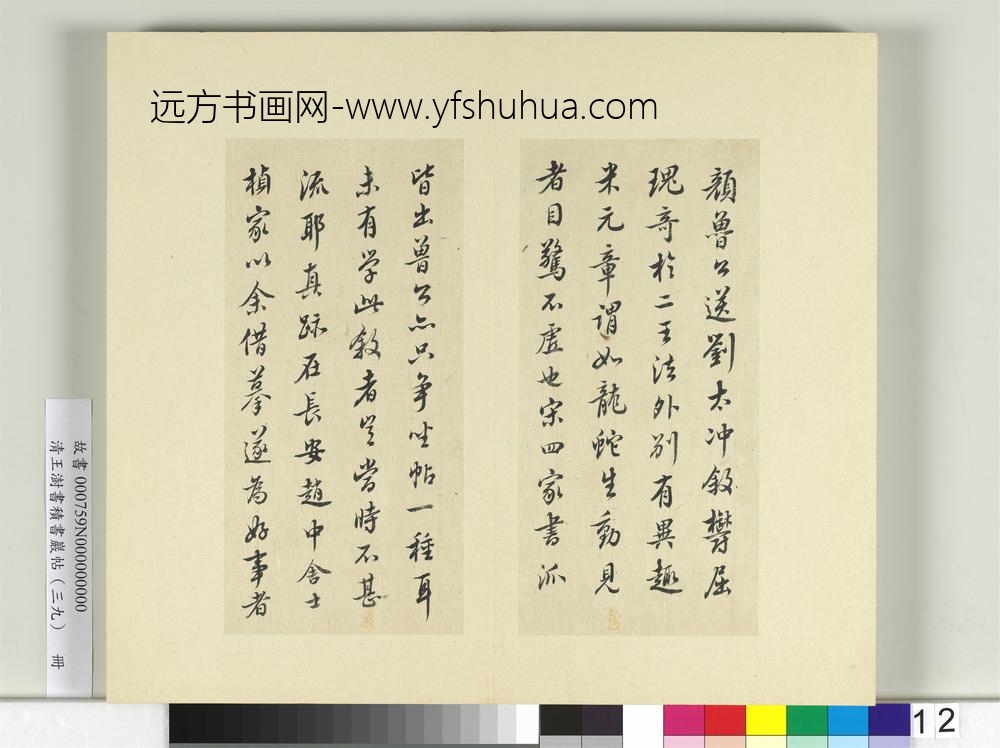 远方书画网-www.yfshuhua.com
顏魯公送劉太沖敘欝屈
瑰奇於二王法外別有異趣
米元章謂如龍蛇生動見
者目驚不虛也宋四家書派
皆出魯公亦只爭坐帖一種耳
未有學此敘者豈當時不甚
流耶真跡在長安趙中舍士
楨家以余借摹遂為好事者
故書 000759N000000000
清王澍書積書巖帖（三九） 冊
12